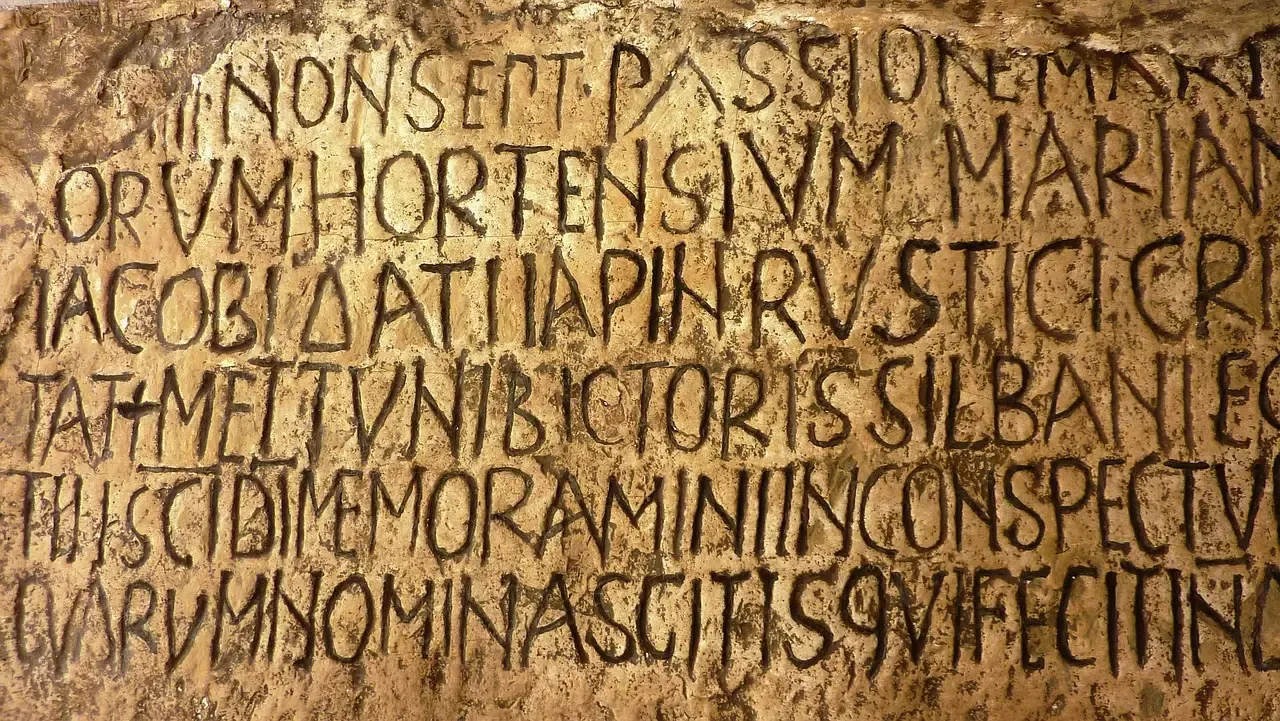 IIII NON SEPT PASSIONE
ORVM HORTENSIVM MARIAN
IACOBI DATI IAPIN RVSTICI CRI
TATI METTVNI BICTORIS SILBANI EG
TII SCI DI MEMORAMINI IN CONSPECTV
QVARVM NOMINA SCITIS QVI FECIT IND